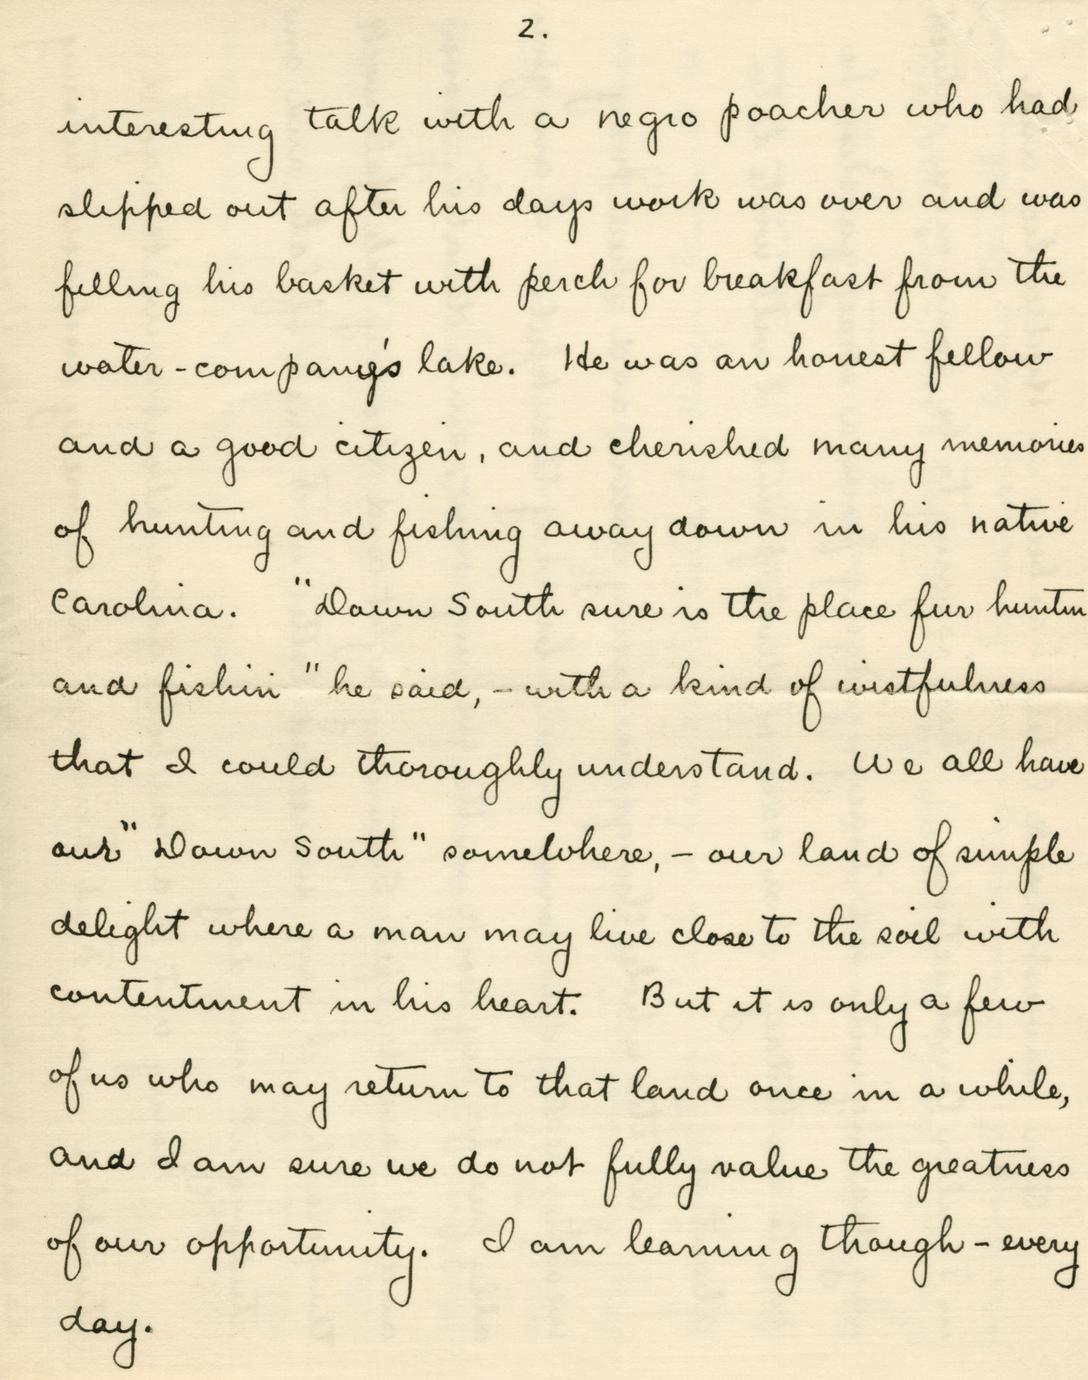 2.
interesting talk with a negro poacher who had
slipped out after his days work was over and was
filling his basket with perch for breakfast from the
water-company's lake. He was an honest fellow
and a good citizen, and cherished many memories
of hunting and fishing away down in his native
Carolina. "Down South sure is the place fur huntin
and fishin" he said, - with a kind of wistfulness
that I could thoroughly understand. We all have
our "Down South" somewhere, - our land of simple
delight where a man may live close to the soil with
contentment in his heart. But it is only a few
of us who may return to that land once in a while,
and I am sure we do not fully value the greatness
of our opportunity. I am learning though - every
day.